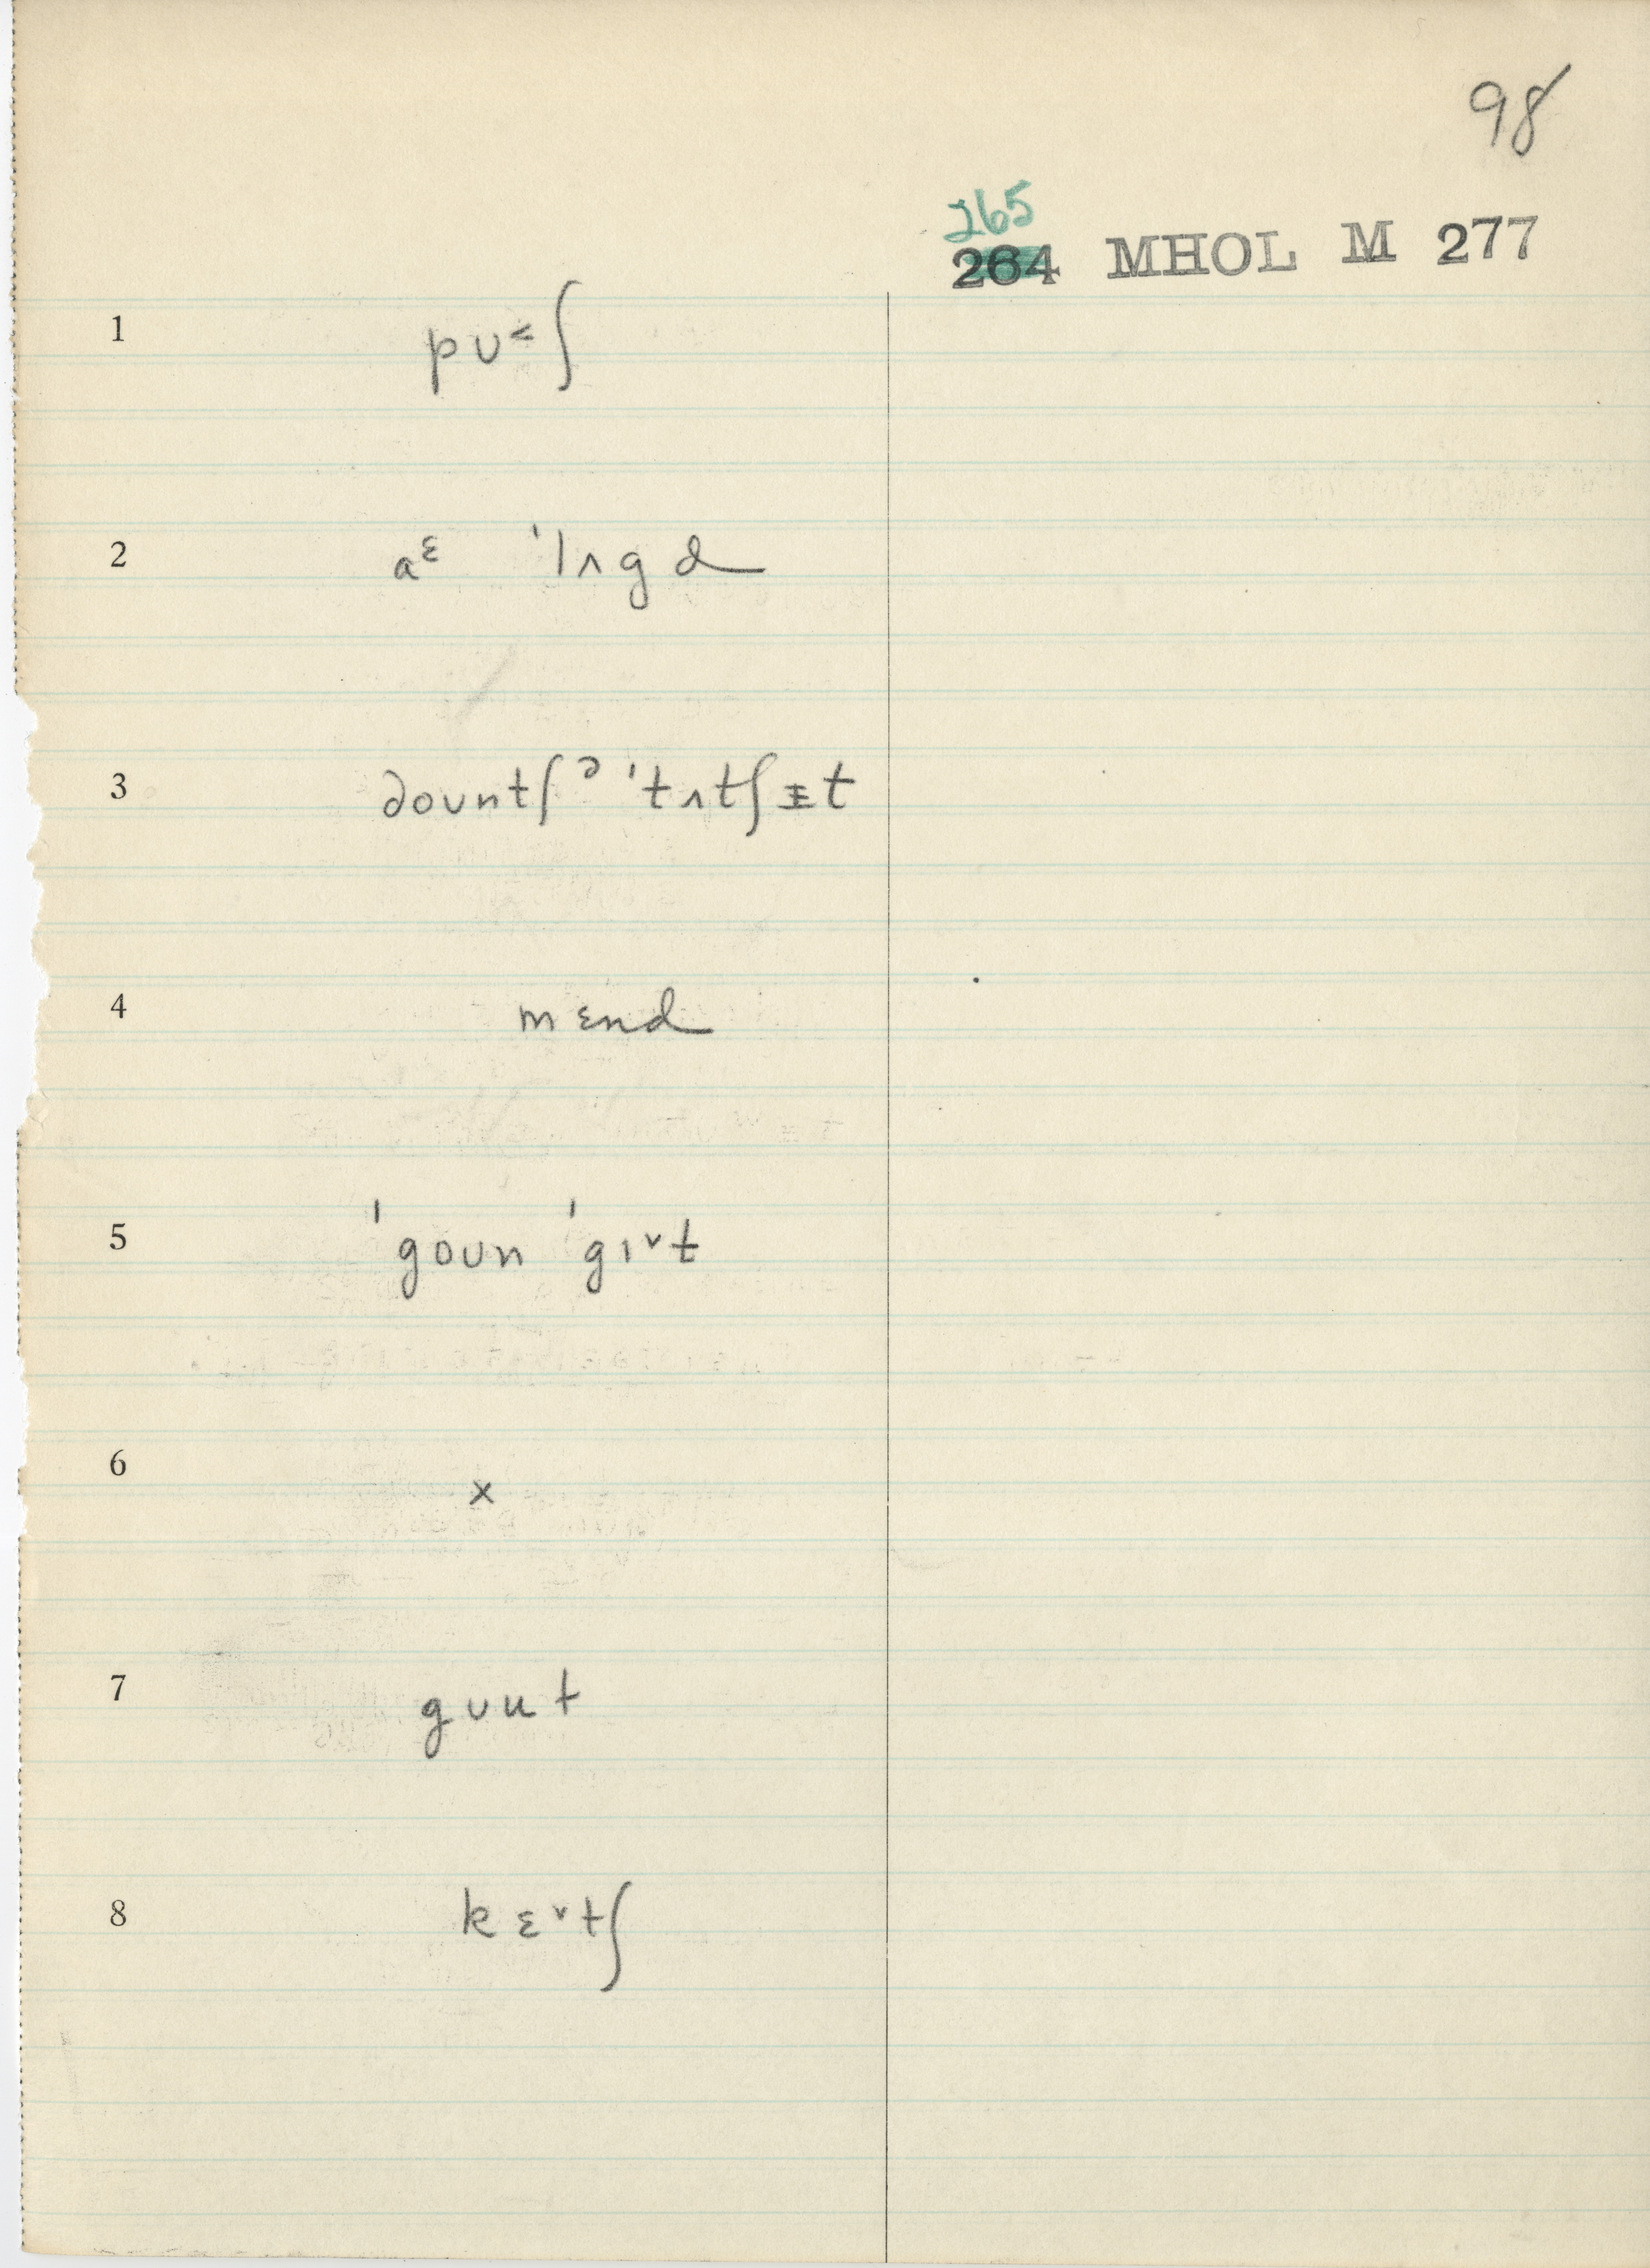 98
265
264 MHOL M 277
1 pʊ˂ʃ
2 aᵋ ˈlʌgd
3 dount∫ᵊ ˈtʌt∫ɪt
4 mɛnd
5 ˈgoʊn ˈgɪ˅t
6 x
7 gʊut
8 kɛ˅tʃ